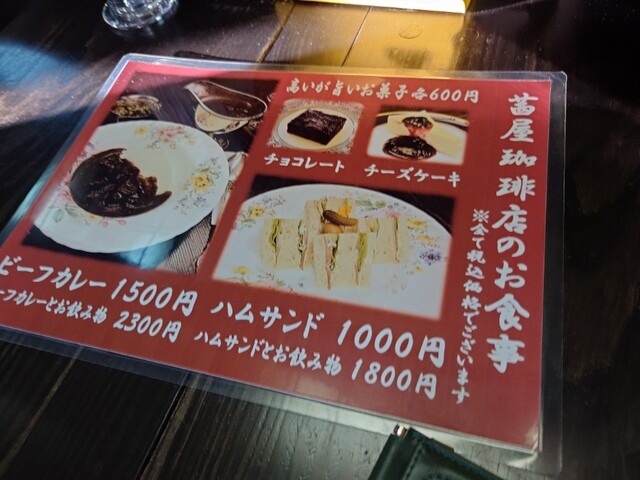 茜屋珈琲店のお食事
※全て税込価格でございます
高いが旨いお菓子各600円
チョコレート
チーズケーキ
ビーフカレー 1500円
ーフカレーとお飲み物 2300円
ハムサンド 1000円
ハムサンドとお飲み物 1800円